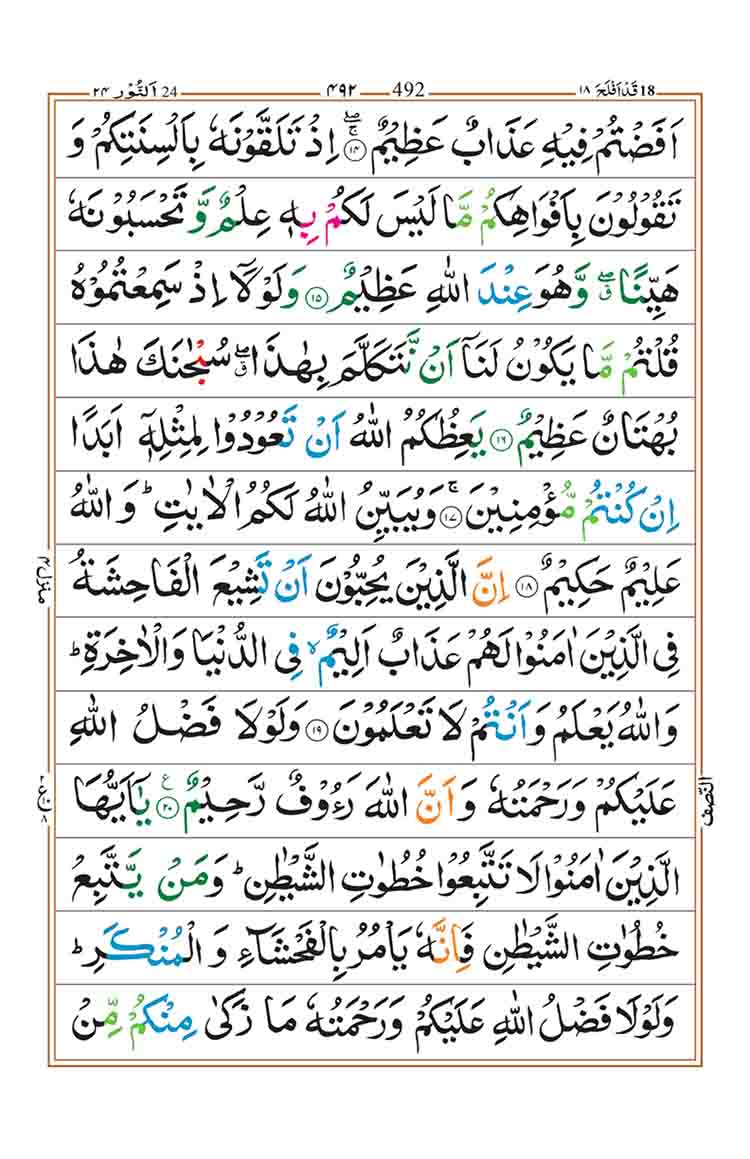 18 قَدۡ اَفۡلَحَ ۱۸ 492 ۴۹۲ 24 اَلنُّوۡر ۲۴
اَفَضۡتُمۡ فِيۡهِ عَذَابٌ عَظِيۡمٌ ۖۚ‏ ﴿۱۴﴾ اِذۡ تَلَقَّوۡنَهٗ بِاَلۡسِنَتِكُمۡ وَ
تَقُوۡلُوۡنَ بِاَفۡوَاهِكُمۡ مَّا لَيۡسَ لَكُمۡ بِهٖ عِلۡمٌ وَّ تَحۡسَبُوۡنَهٗ
هَيِّنًا ۖ ق وَّ هُوَ عِنۡدَ اللّٰهِ عَظِيۡمٌ ﴿۱۵﴾ وَ لَوۡلَاۤ اِذۡ سَمِعۡتُمُوۡهُ
قُلۡتُمۡ مَّا يَكُوۡنُ لَنَاۤ اَنۡ نَّتَكَلَّمَ بِهٰذَا ۖ ق سُبۡحٰنَكَ هٰذَا
بُهۡتَانٌ عَظِيۡمٌ ﴿۱۶﴾ يَعِظُكُمُ اللّٰهُ اَنۡ تَعُوۡدُوۡا لِمِثۡلِهٖۤ اَبَدًا
اِنۡ كُنۡتُمۡ مُّؤۡمِنِيۡنَ ۚ‏ ﴿۱۷﴾ وَيُبَيِّنُ اللّٰهُ لَكُمُ الۡاٰيٰتِ‌ ؕ وَ اللّٰهُ
عَلِيۡمٌ حَكِيۡمٌ ﴿۱۸﴾ اِنَّ الَّذِيۡنَ يُحِبُّوۡنَ اَنۡ تَشِيۡعَ الۡفَاحِشَةُ
منزل ۴
فِى الَّذِيۡنَ اٰمَنُوۡا لَهُمۡ عَذَابٌ اَلِيۡمٌۙ فِى الدُّنۡيَا وَالۡاٰخِرَةِ‌ ؕ
وَاللّٰهُ يَعۡلَمُ وَ اَنۡتُمۡ لَا تَعۡلَمُوۡنَ ﴿۱۹﴾ وَلَوۡلَا فَضۡلُ اللّٰهِ
عَلَيۡكُمۡ وَرَحۡمَتُهٗ وَ اَنَّ اللّٰهَ رَءُوۡفٌ رَّحِيۡمٌ ﴿۲۰﴾ ع يٰۤـاَيُّهَا
النّصف
الَّذِيۡنَ اٰمَنُوۡا لَا تَتَّبِعُوۡا خُطُوٰتِ الشَّيۡطٰنِ‌ ؕ وَمَنۡ يَّتَّبِعۡ
خُطُوٰتِ الشَّيۡطٰنِ فَاِنَّهٗ يَاۡمُرُ بِالۡـفَحۡشَآءِ وَ الۡمُنۡكَرِ‌ ؕ
وَلَوۡلَا فَضۡلُ اللّٰهِ عَلَيۡكُمۡ وَرَحۡمَتُهٗ مَا زَكٰى مِنۡكُمۡ مِّنۡ